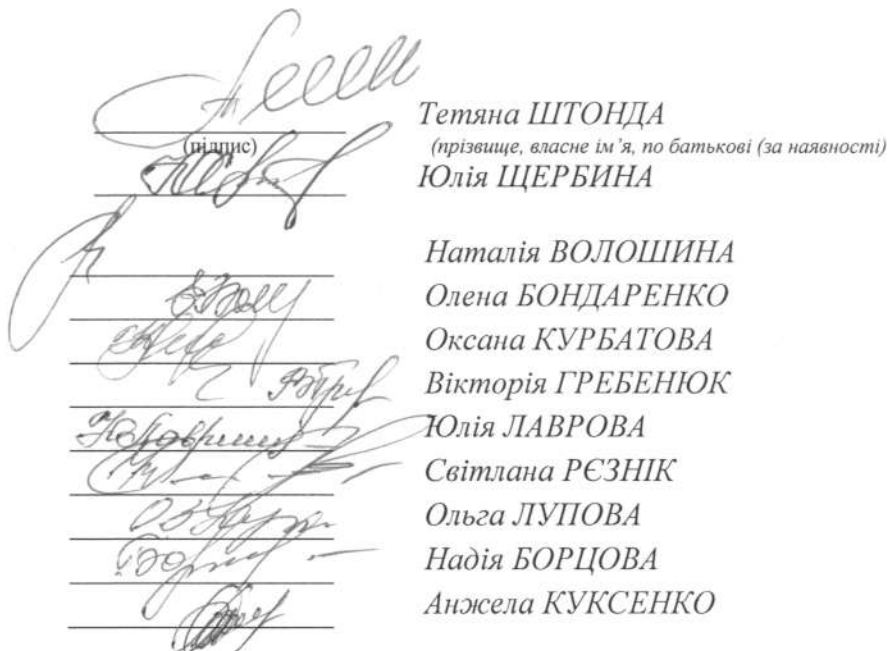 Тетяна ШТОНДА
(підпис) (прізвище, власне ім’я, по батькові (за наявності)
Юлія ЩЕРБИНА
Наталія ВОЛОШИНА
Олена БОНДАРЕНКО
Оксана КУРБАТОВА
Вікторія ГРЕБЕНЮК
Юлія ЛАВРОВА
Світлана РЄЗНІК
Ольга ЛУПОВА
Надія БОРЦОВА
Анжела КУКСЕНКО